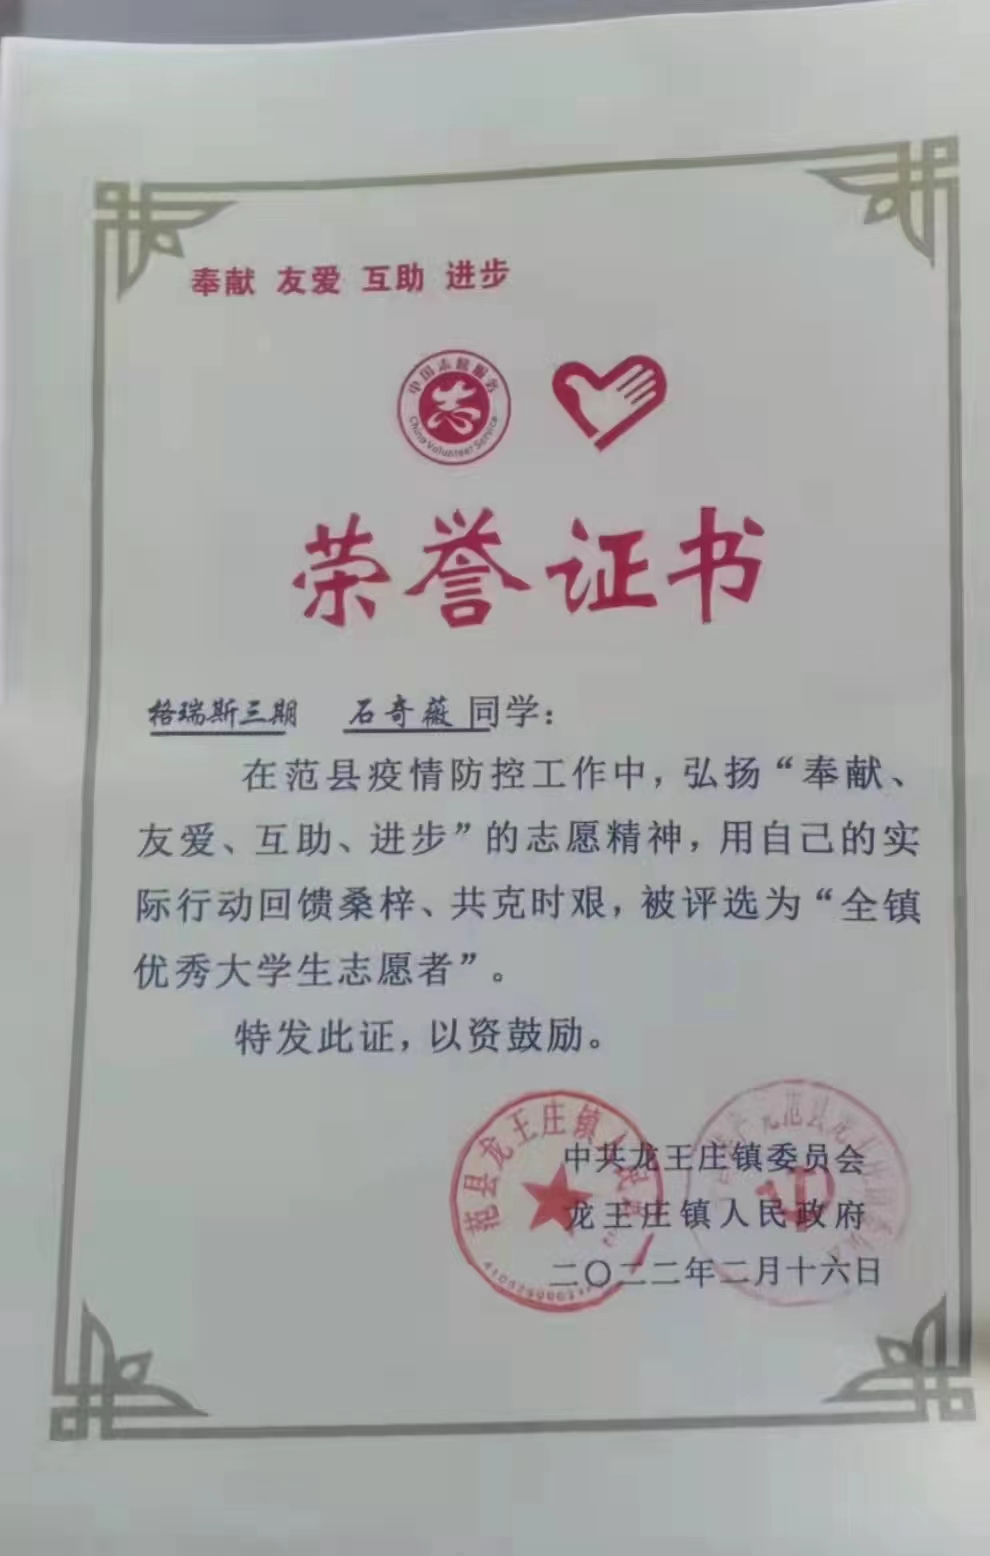 奉献 友爱 互助 进步
中国志愿服务
China Volunteer Service
荣誉证书
格瑞斯三期 石奇薇 同学：
在范县疫情防控工作中，弘扬“奉献、
友爱、互助、进步”的志愿精神，用自己的实
际行动回馈桑梓、共克时艰，被评选为“全镇
优秀大学生志愿者”。
特发此证，以资鼓励。
范县龙王庄镇人民
中共龙王庄镇委员会
龙王庄镇人民政府
二〇二二年二月十六日